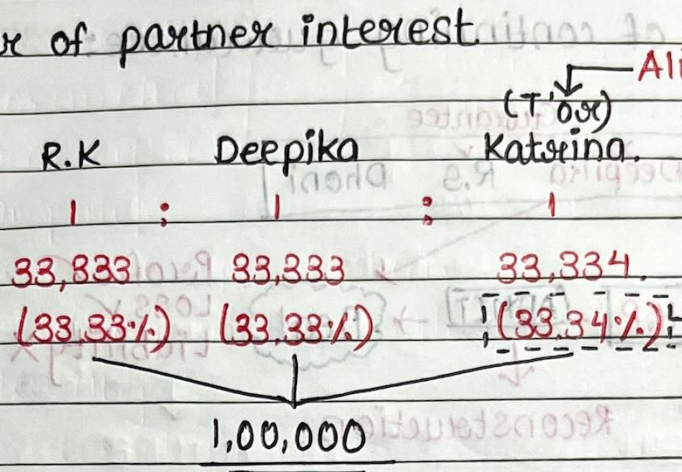 r of partner interest.
Ali
(T'or)
R.K Deepika Katrina.
1 : 1 : 1
33,333 33,333 33,334.
(33.33%) (33.33%) (33.34%)
1,00,000
Reconstruction